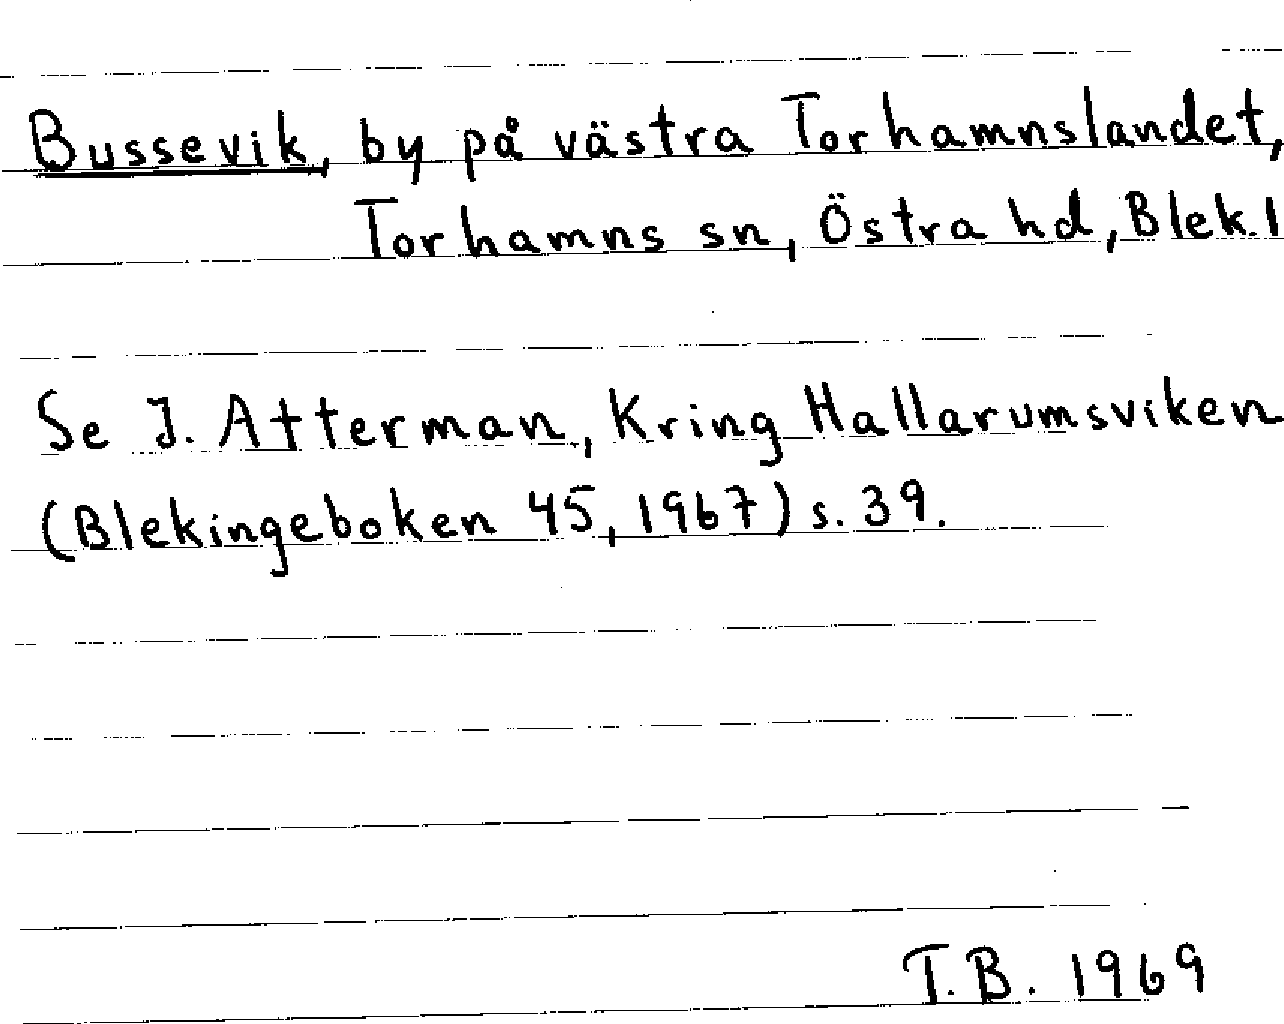 Bussevik, by på västra Torhamnslandet,
Torhamns sn, Östra hd, Blek. l
Se I. Atterman, Kring Hallarumsviken
(Blekingeboken 45, 1967) s. 39.
T.B. 1969